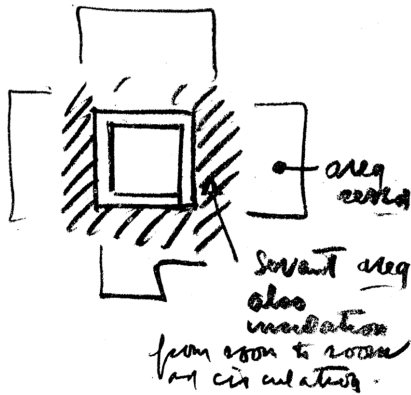 area
served
servant area
also
insulation
from room to room
and circulation.